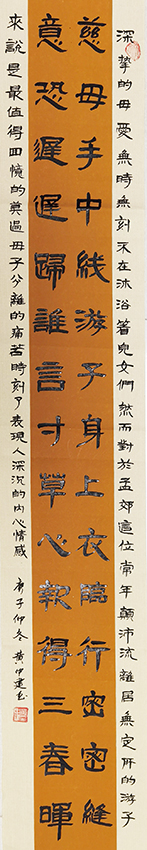 深挚的母愛無時無刻不在沐浴著兒女們然而對於孟郊這位常年顛沛流離居無定所的游子
慈母手中线游子身上衣臨行密密縫
意恐遲遲歸誰言寸草心報得三春暉
來說是最值得回憶的莫過母子分離的痛苦時刻了表現人深沉的內心情感
庚子仲冬黄中